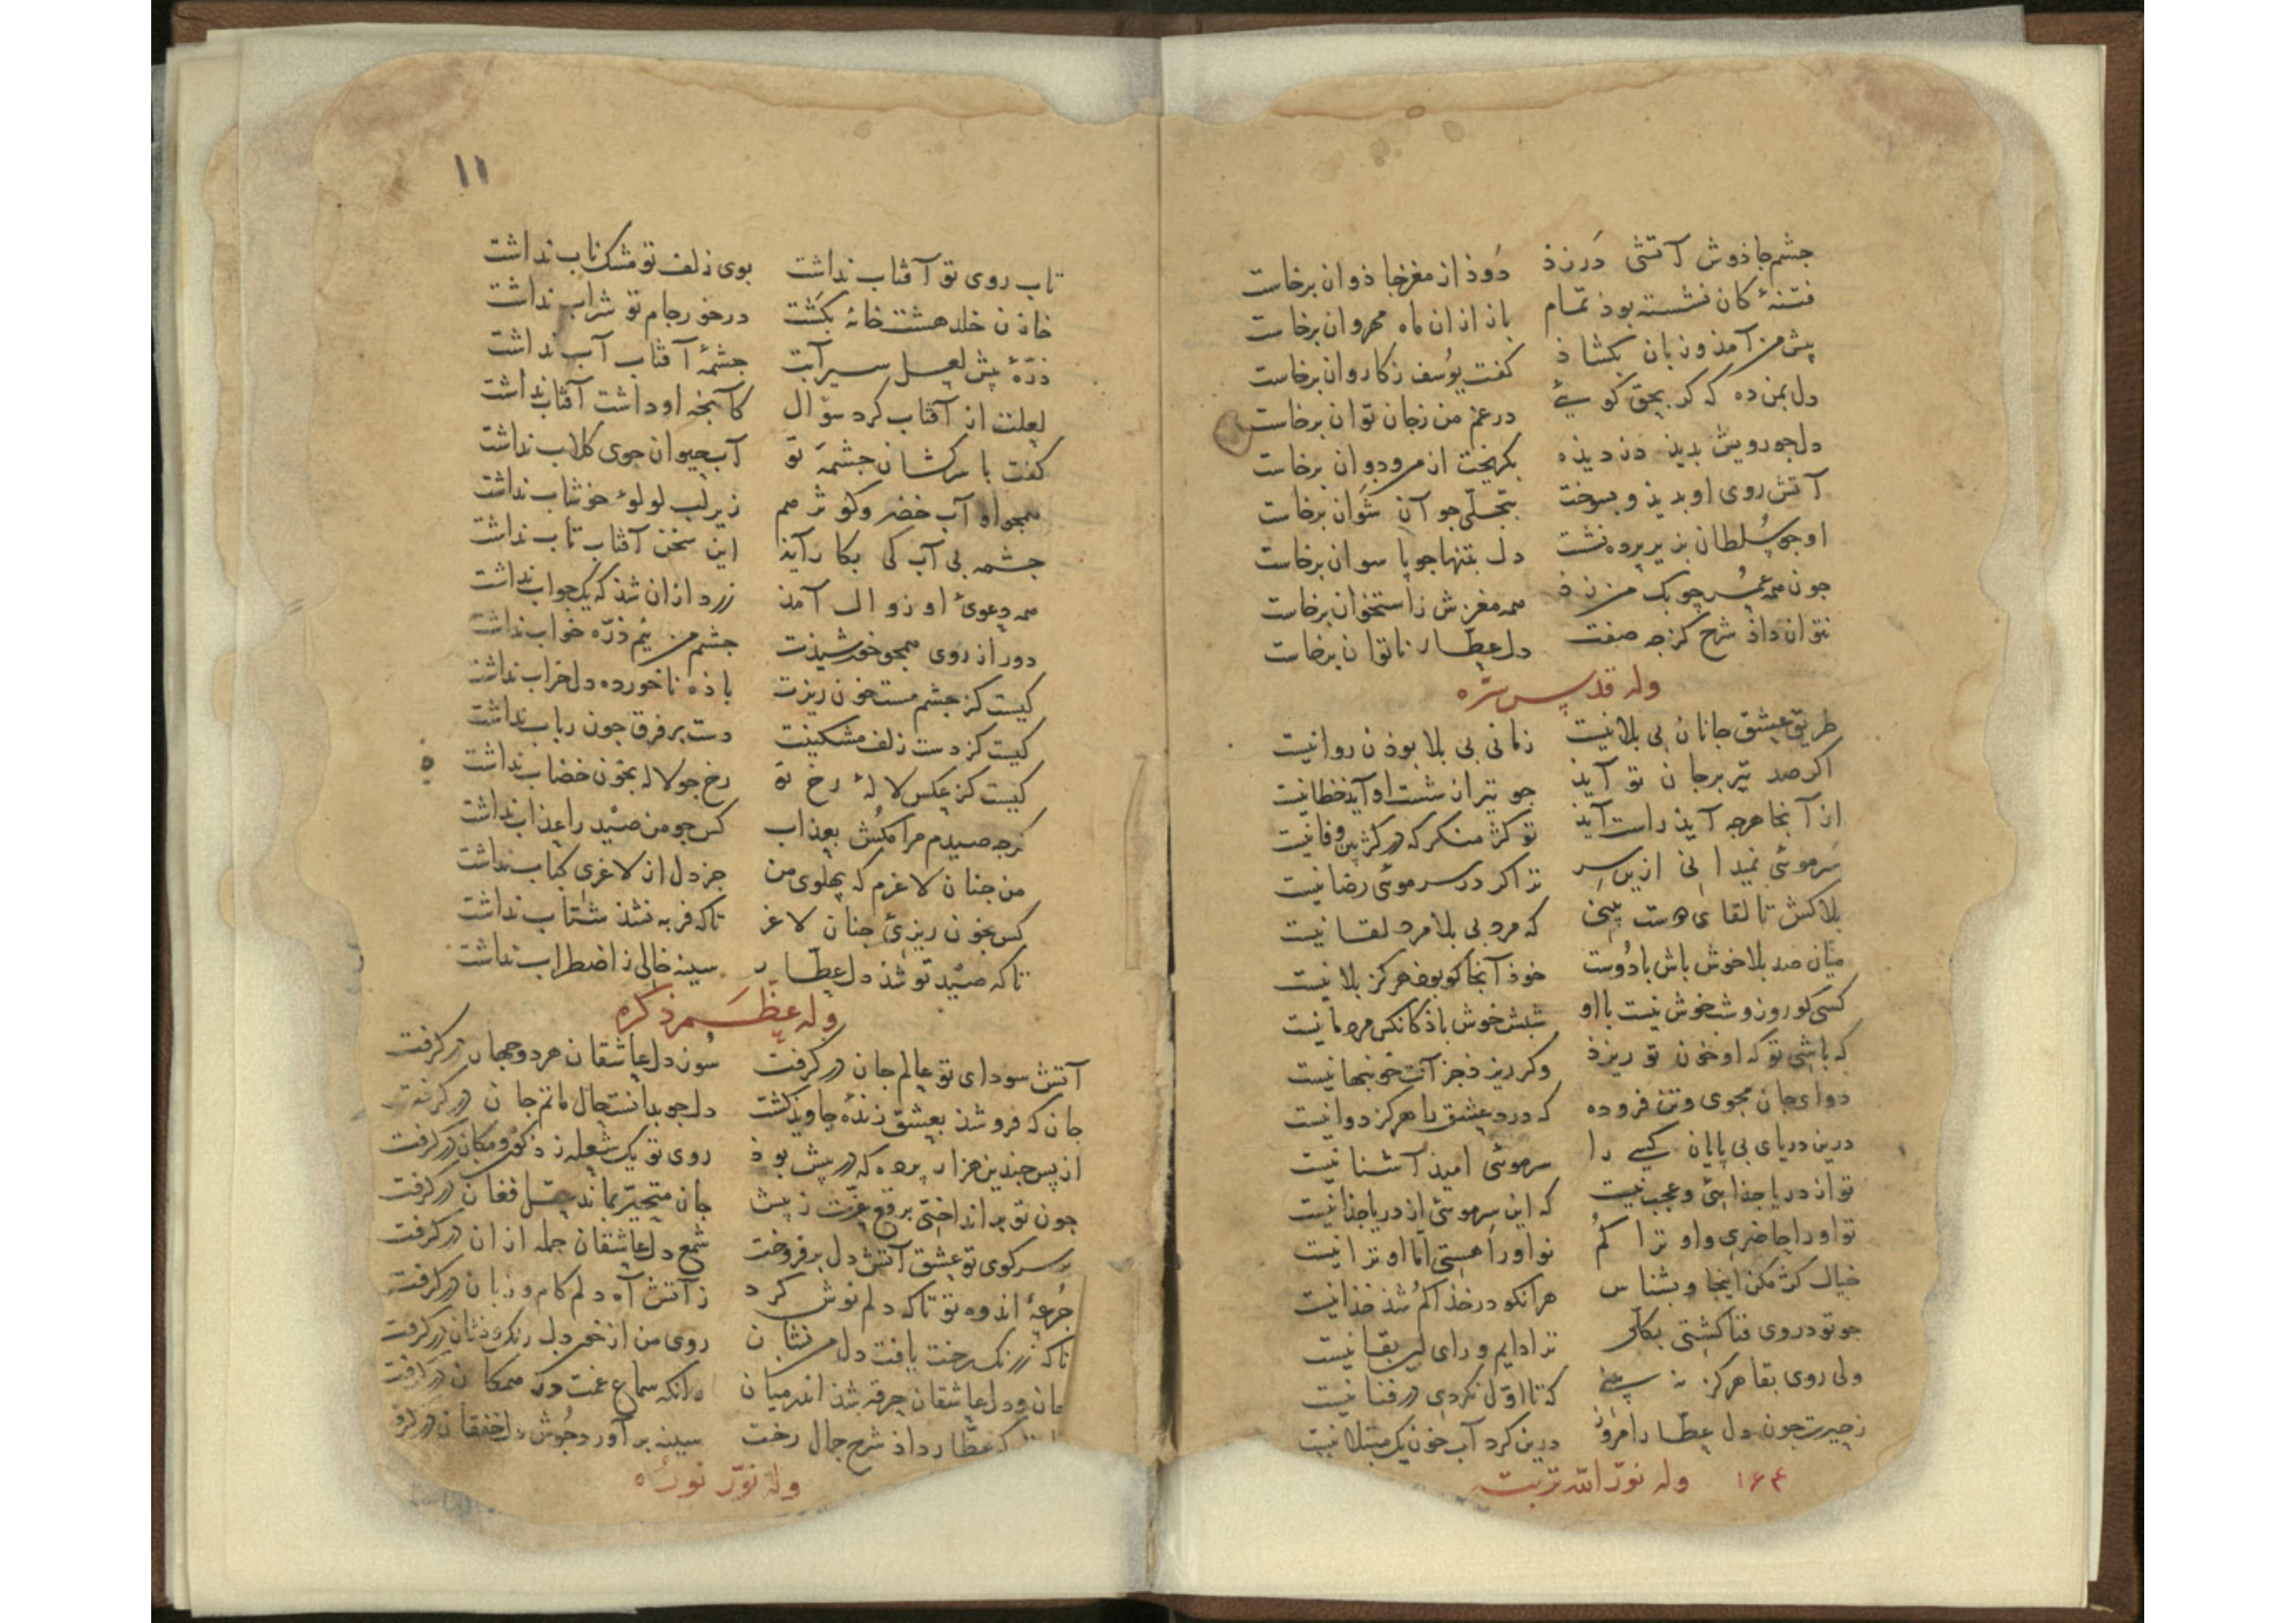 جشم جاذوش آتشی در زذ دوذ از مغز جاذوان برخاست
فتنهٔ کان نشسته بوذ تمام باز ازان ماه مهروان برخاست
پیش من آمذ و زبان بکشاذ کفت یوسف ز کاروان برخاست
دل بمن ده که کر بحق کویی در غم من ز جان توان برخاست
دل جو رویش بدید دزدیذه بکریخت از من و دوان برخاست
آتش روی او بدیذ و بسوخت بتجلی جو آن شوان برخاست
او جو سلطان بزیر پرده نشست دل بتنها جو پاسوان برخاست
جون همه عمر جوبک من زذ همه مغزش ز استخوان برخاست
نتوان داذ شرح کز جه صفت دل عطار ناتوان برخاست
وله قدس سره
طریق عشق جانان بی بلا نیست زمانی بی بلا بوذن روا نیست
اکر صد تیر بر جان تو آیذ جو تیر از شست او آیذ خطا نیست
از آنجا هرجه آیذ راست آیذ تو کژ منکر که در کژ بین وفا نیست
سر موئی نمیدانی ازین سر ترا کر در سر موئی رضا نیست
بلا کش تا لقای دوست بینی که مرد بی بلا مرد لقا نیست
میان صد بلا خوش باش با دوست خوذ آنجا کو بوذ هرکز بلا نیست
کسی کو روز و شب خوش نیست با او شبش خوش باذ کانکس مرد ما نیست
که باشی تو که او خون تو ریزذ وکر ریزذ جز آنت خونبها نیست
دوای جان مجوی و تن فرو ده که درد عشق را هرکز دوا نیست
درین دریای بی پایان کسی را سر موئی امیذ آشنا نیست
تو از دریا جذائی و عجب نیست که این سر موئی از دریا جذا نیست
تو او را حاضری و او ترا کم تو او را هستی اما او ترا نیست
خیال کژ مکن اینجا و بشناس هر آنکو در خذا کم شذ خذا نیست
جو تو در روی فنا کشتی بکلی ترا دایم ورای این بقا نیست
ولی روی بقا هرکز نه بینی که تا اول نکردی در فنا نیست
ز حیرت جون دل عطار امروز درین کرداب خون یک مبتلا نیست
وله نور الله تربته ۱۶۴
۱۱
تاب روی تو آفتاب نداشت بوی زلف تو مشک ناب نداشت
خازن خلد هشت خانه بکشت درخور جام تو شراب نداشت
ذرهٔ پیش لعل سیرابت جشمهٔ آفتاب آب نداشت
لعلت از آفتاب کرد سؤال کآنچه او داشت آفتاب نداشت
کفت با سرکشان جشمهٔ تو آب حیوان جوی کلاب نداشت
همجو او آب خضر و کوثر هم زیر لب لولوء خوشاب نداشت
جشمه بی آب کی بکار آیذ این سخن آفتاب تاب نداشت
همه دعوئ او زوال آمذ زرد ازان شذ که یک جواب نداشت
دور از روی همجو خورشیذت جشم من نیم ذره خواب نداشت
کیست کز جشم مست خون ریزت باذه ناخورده دل خراب نداشت
کیست کز دست زلف مشکینت دست بر فرق جون رباب نداشت
کیست کز عکس لالهٔ رخ تو رخ جو لاله بخون خضاب نداشت
کرجه صیدم مرا مکش بعذاب کس جو من صید را عذاب نداشت
من جنان لاغرم که پهلوی من جز دل از لاغری کباب نداشت
کس بخون ریزئ جنان لاغر تاکه فربه نشذ شتاب نداشت
تاکه صید تو شذ دل عطار سینه خالی ز اضطراب نداشت
وله عظم ذکره
آتش سودای تو عالم جان درکرفت سوز دل عاشقان هر دو جهان درکرفت
جان که فرو شذ بعشق زندهٔ جاویذ کشت دل جو بدانست حال ماتم جان درکرفت
از پس جندین هزار پرده که در پیش بوذ روی تو یک شعله زذ کون و مکان درکرفت
جون تو بر انداختی برقع عزت ز پیش جان متحیر بماند عقل فغان درکرفت
بر سر کوی تو عشق آتش دل برفروخت شمع دل عاشقان جمله ازان درکرفت
جرعهٔ اندوه تو تاکه دلم نوش کرد ز آتش آه دلم کام و زبان درکرفت
تاکه ز رنک رخت یافت دل من نشان روی من از خون دل رنک و نشان درکرفت
جان و دل عاشقان خرقه شذ اندر میان زانکه سماع غمت در همکان درکرفت
عطار داذ شرح جمال رخت سینه بر آورد جوش دل خفقان درکرفت
وله نور نوره